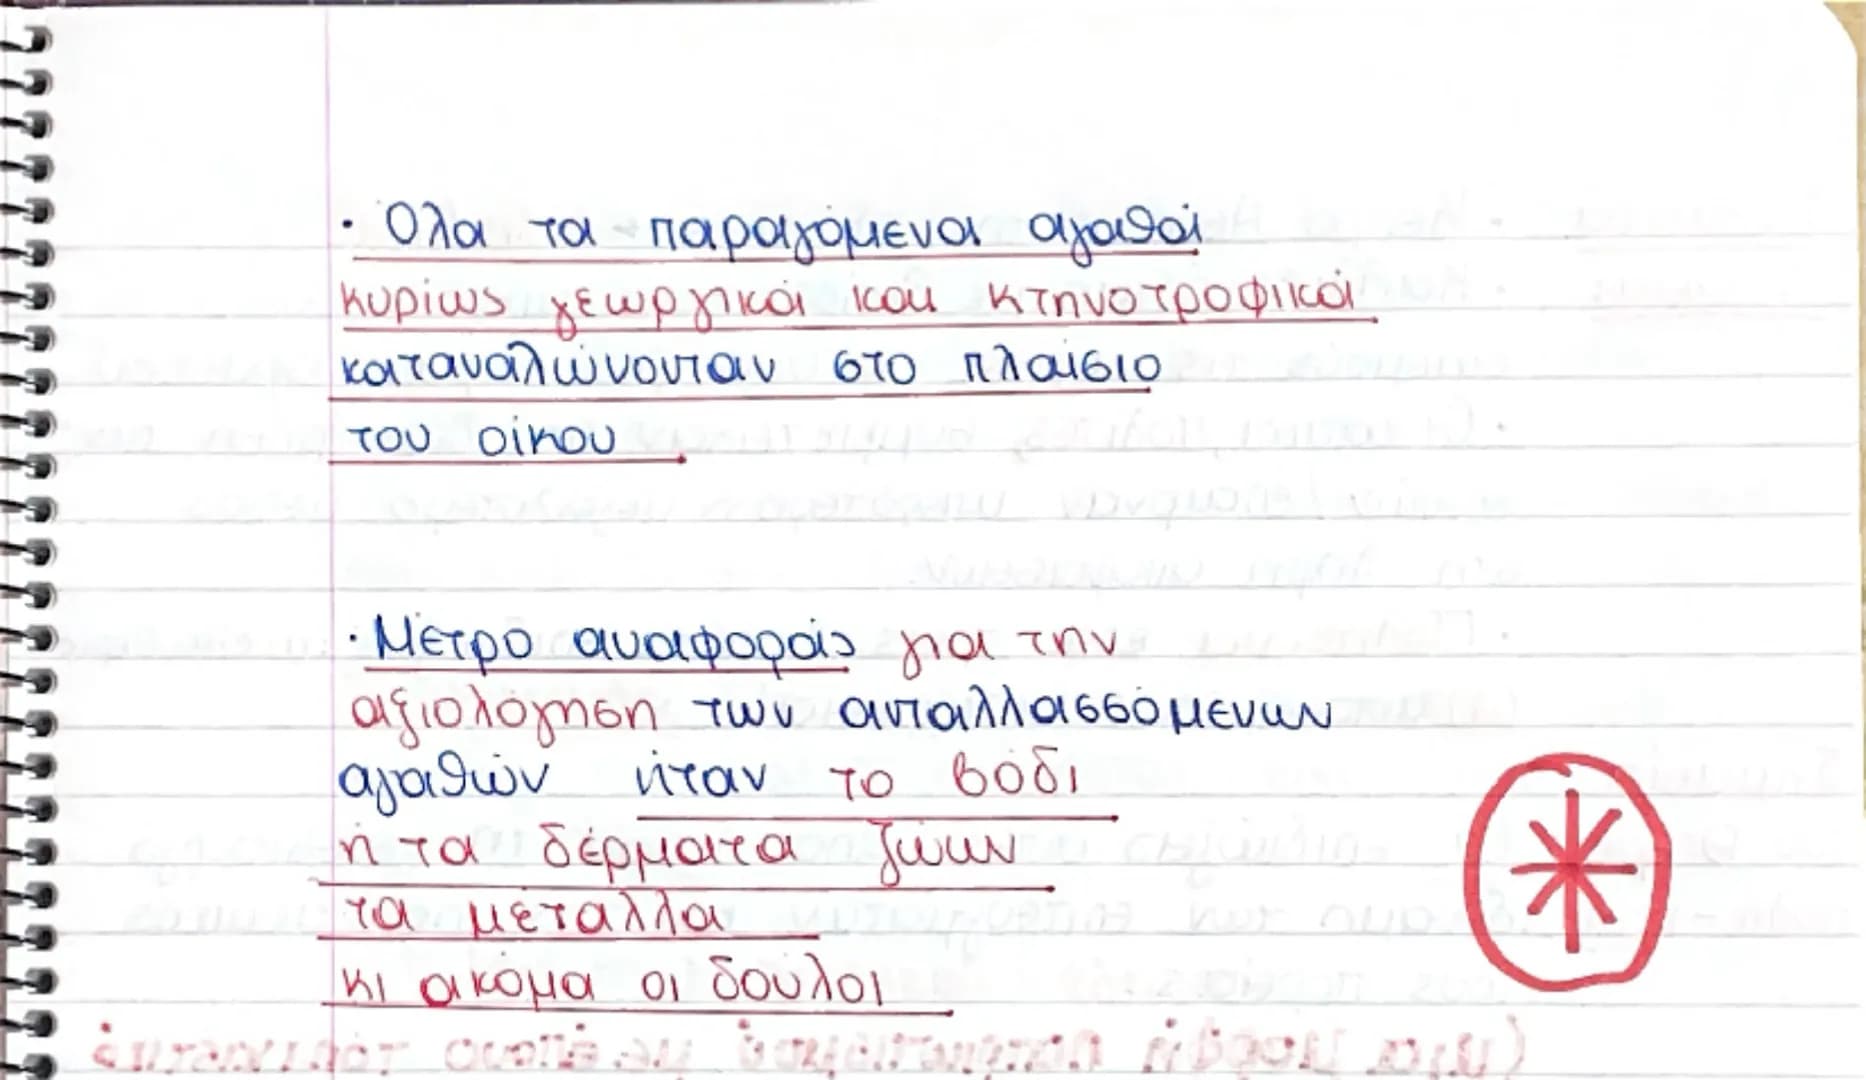 · Όλα τα παραγόμενα αγαθά
κυρίως γεωργικά και κτηνοτροφικά
καταναλώνονταν στο πλαίσιο
του οίκου
· Μέτρο αναφοράς για την
αξιολόγηση των ανταλλασσόμενων
αγαθών ήταν το βόδι
ή τα δέρματα ζώων
τα μέταλλα
κι ακόμα οι δούλοι